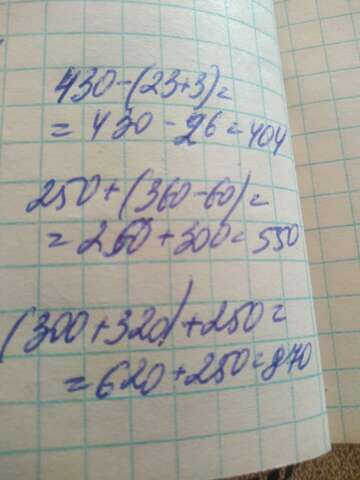 430-(23+3)=
= 430 - 26 = 404
250 + (360-60)=
= 250 + 300 = 550
(300+320)+250=
= 620 + 250 = 870